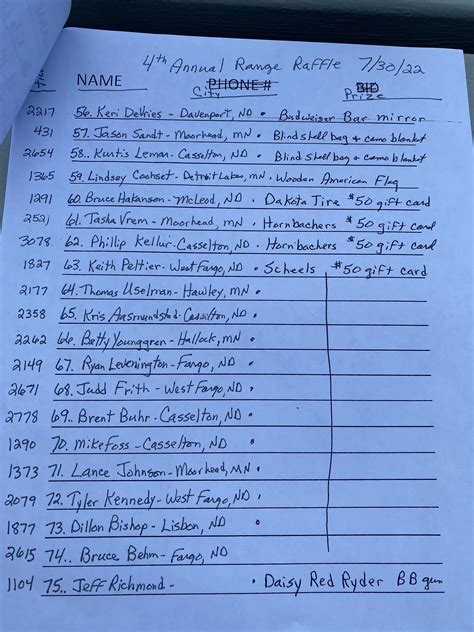 4th Annual Range Raffle 7/30/22
NAME PHONE # BID
City Prize
2217 56. Keri DeVries - Davenport, ND • Budweiser Bar mirror
431 57. Jason Sandt - Moorhead, MN • Blind shell bag & camo blanket
2654 58.. Kurtis Leman - Casselton, ND • Blind shell bag & camo blanket
1365 59. Lindsey Cookset - Detroit Lakes, MN. Wooden American Flag
1291 60. Bruce Hakanson - McLeod, ND • Dakota Tire $50 gift card
2521 61. Tasha Vrem - Moorhead, MN • Hornbachers $50 gift card
3078 62. Phillip Kellur - Casselton, ND • Hornbachers $50 gift card
1827 63. Keith Peltier - West Fargo, ND • Scheels $50 gift card
2177 64. Thomas Uselman - Hawley, MN •
2358 65. Kris Aasmundstad - Casselton, ND •
2262 66. Betty Younggren - Hallock, MN •
2149 67. Ryan Levenington - Fargo, ND •
2671 68. Judd Frith - West Fargo, ND •
2778 69.. Brent Buhr - Casselton, ND •
1290 70. Mike Foss - Casselton, ND •
1373 71. Lance Johnson - Moorhead, MN •
2079 72. Tyler Kennedy - West Fargo, ND •
1877 73. Dillon Bishop - Lisbon, ND •
2615 74.. Bruce Behm - Fargo, ND
1104 75.. Jeff Richmond - • Daisy Red Ryder BB gun